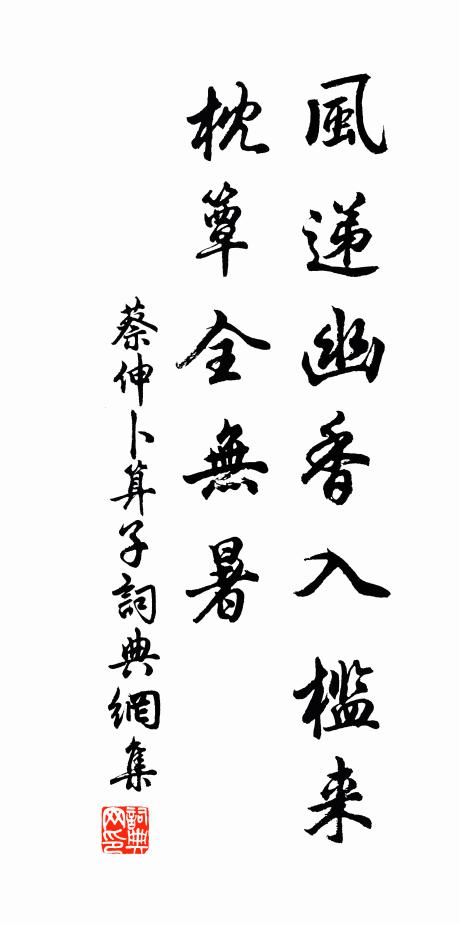 風递幽香入檻来
枕簟全無暑
蔡伸卜算子詞典網集
詞典
网印